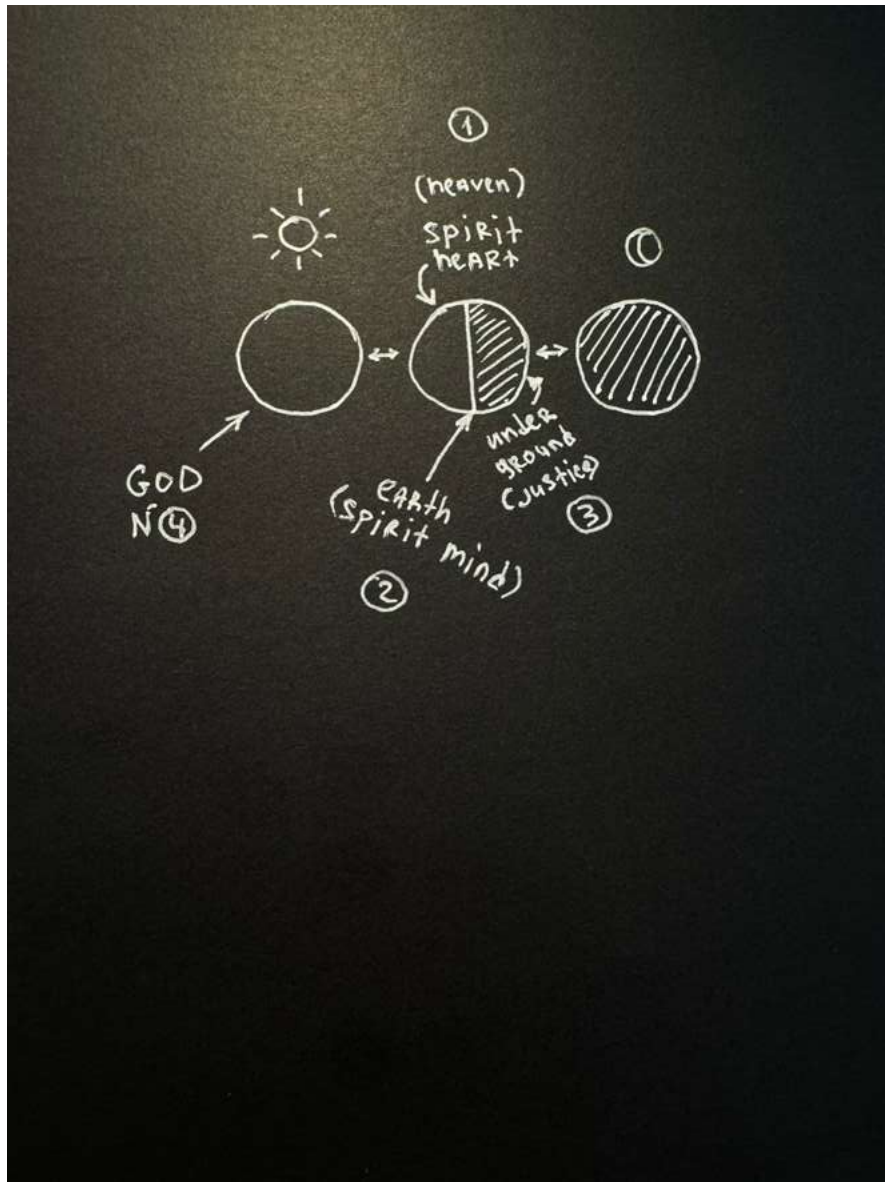 1
(heaven)
spirit
heart
GOD
N 4
earth
(spirit mind)
2
under
ground
(justice)
3